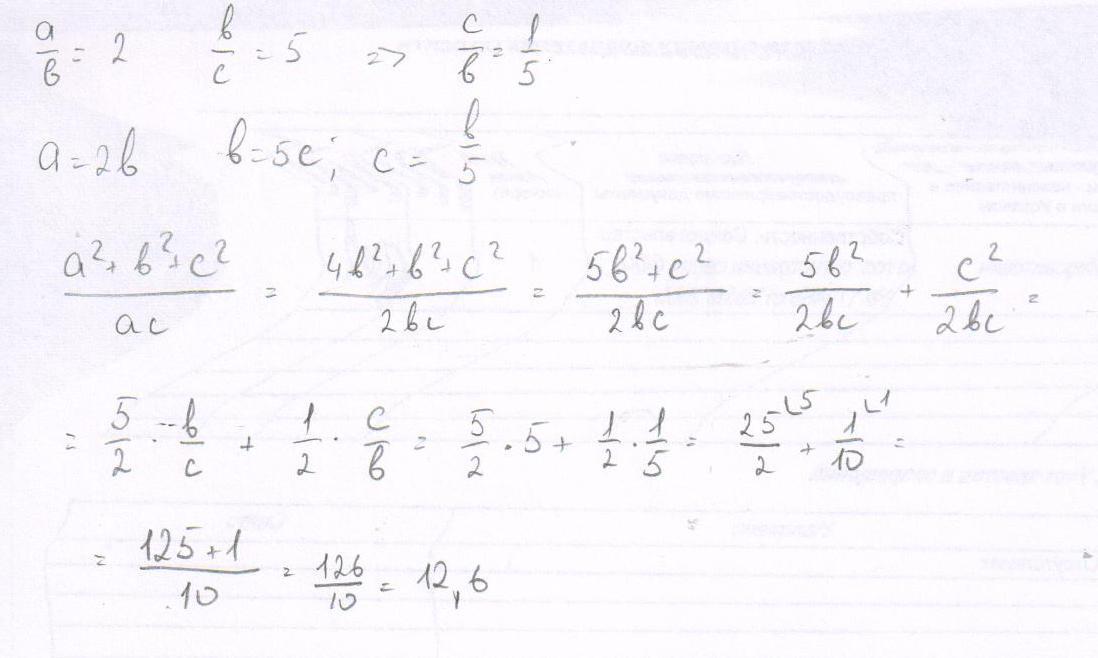 a/b = 2 b/c = 5 => c/b = 1/5
a = 2b b = 5c; c = b/5
(a²+b²+c²)/(ac) = (4b²+b²+c²)/(2bc) = (5b²+c²)/(2bc) = 5b²/(2bc) + c²/(2bc) =
= 5/2 · b/c + 1/2 · c/b = 5/2 · 5 + 1/2 · 1/5 = 25/2 ⌞5 + 1/10 ⌞1 =
= (125+1)/10 = 126/10 = 12,6